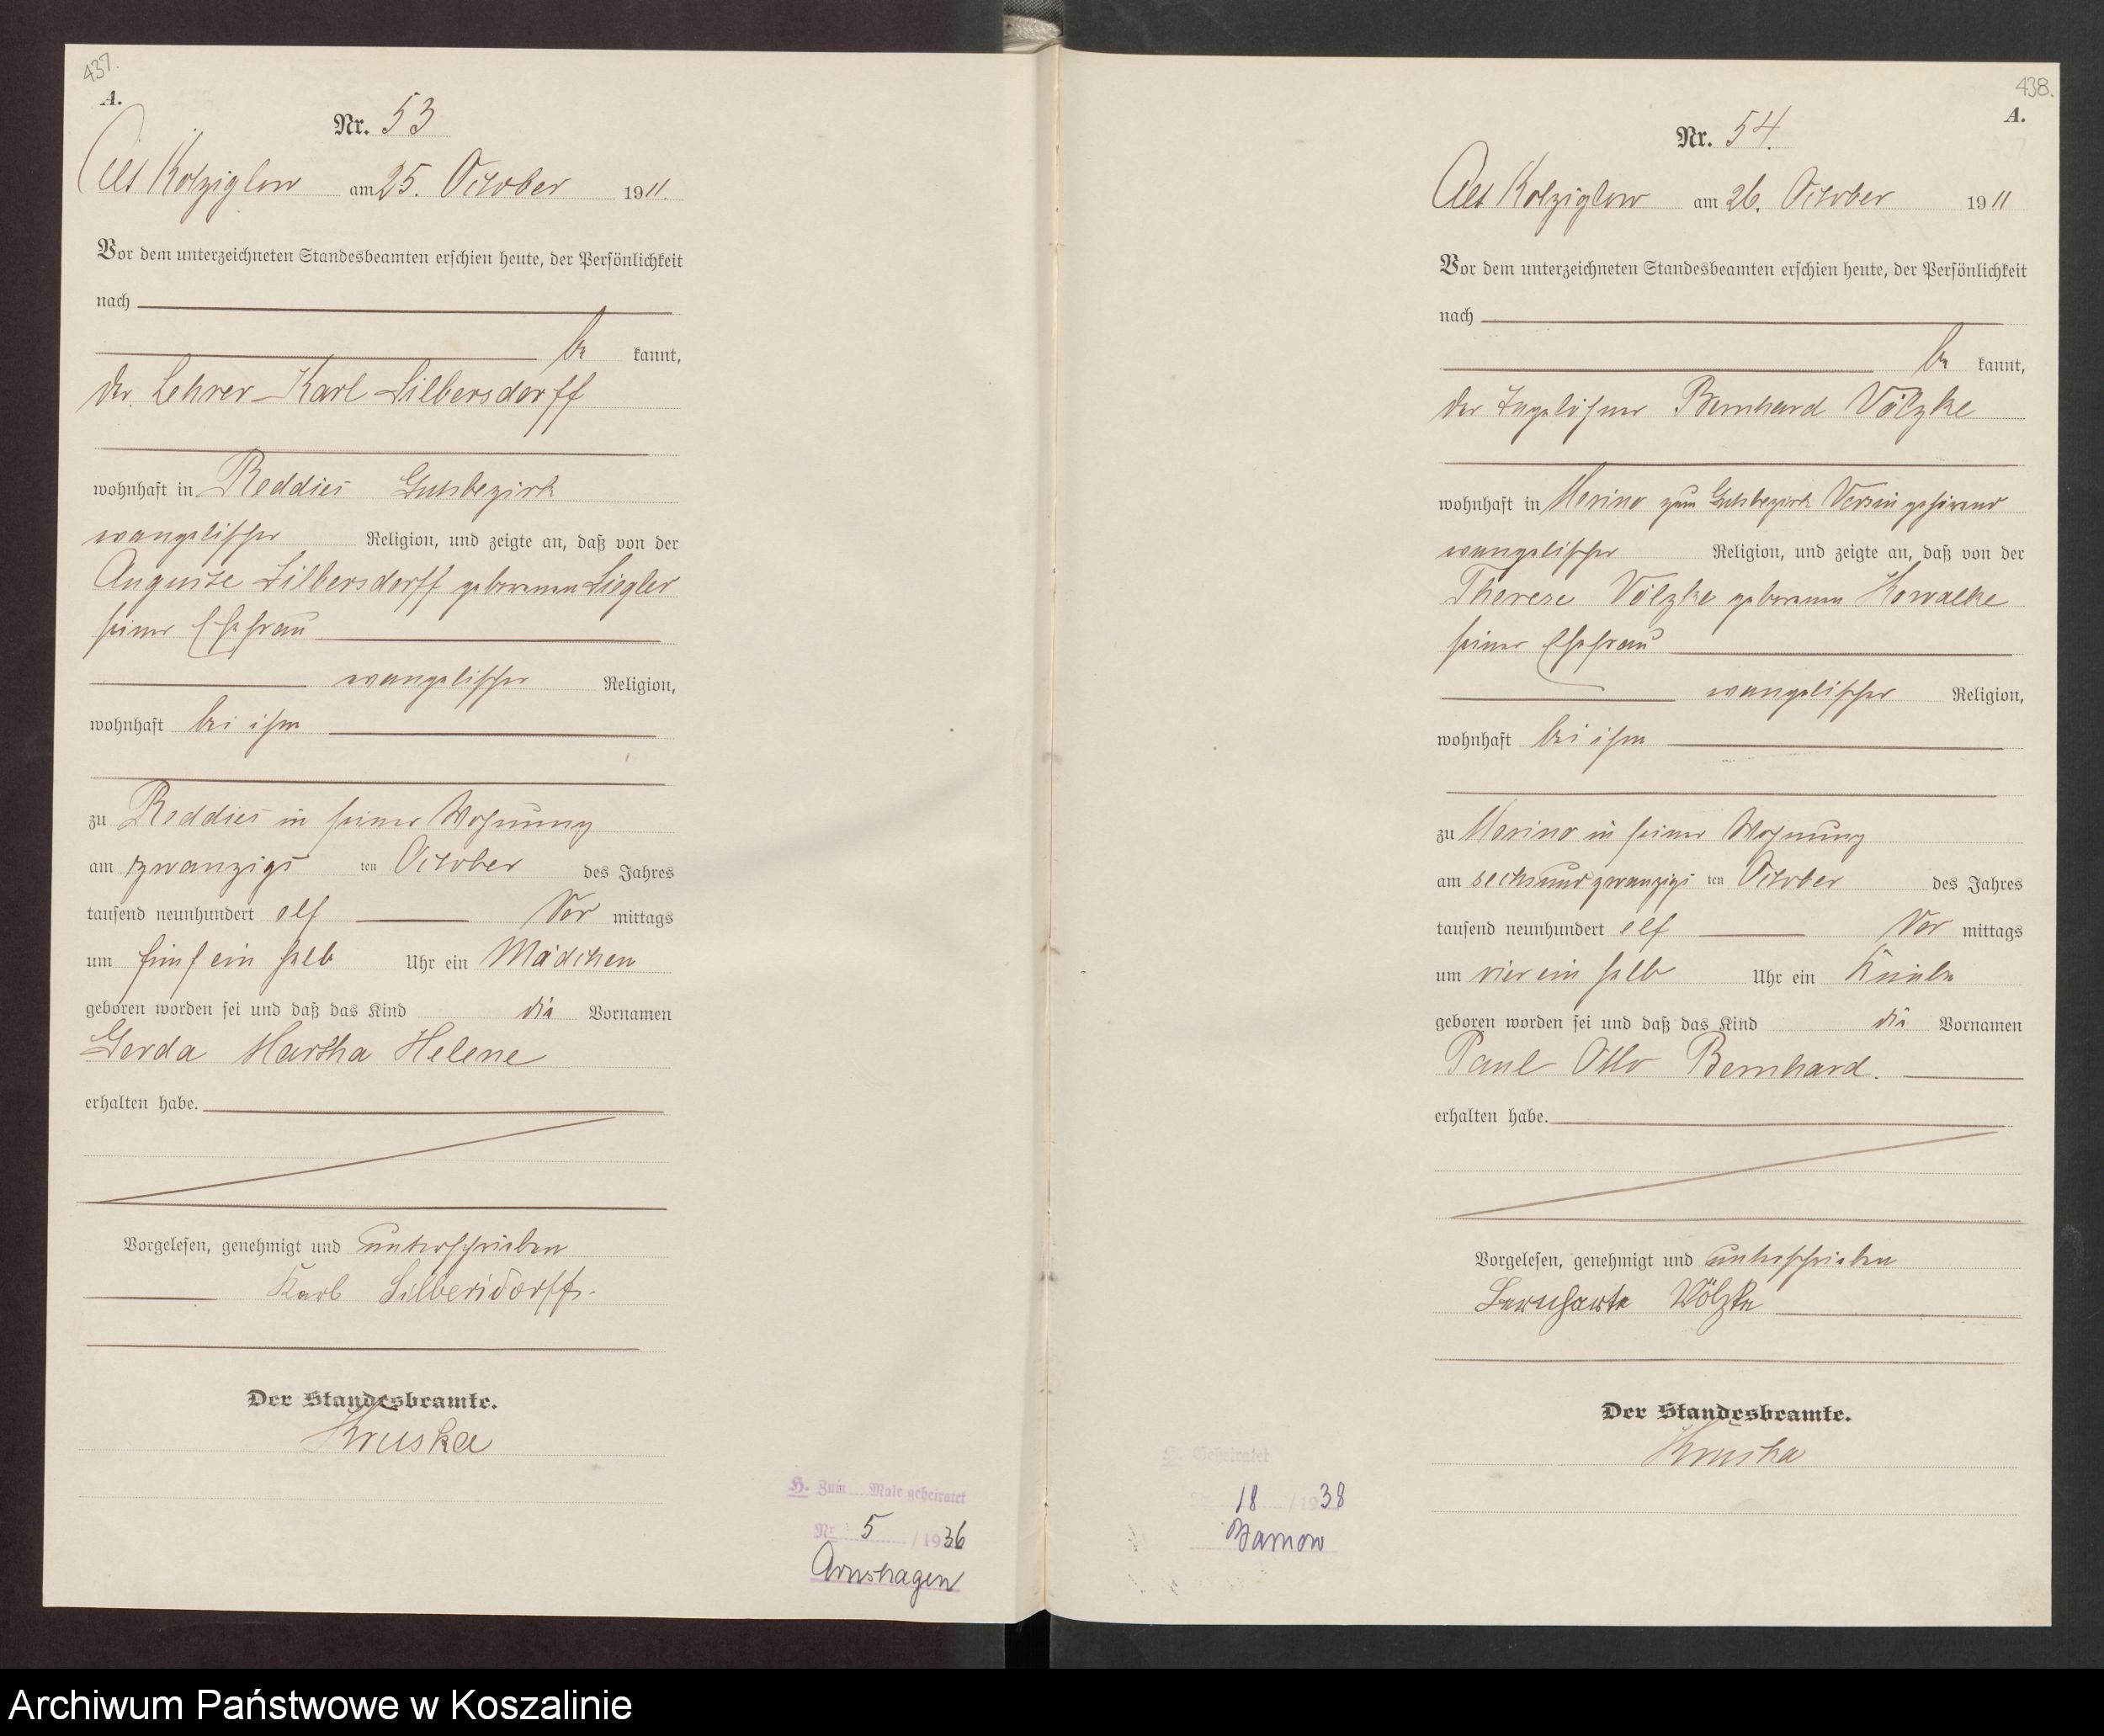 437.
A.
Nr. 53
Alt Kolziglow am 25. October 1911.
Vor dem unterzeichneten Standesbeamten erschien heute, der Persönlichkeit
nach
be kannt,
der Lehrer Karl Silbersdorff
wohnhaft in Reddies Gutsbezirk
evangelischer Religion, und zeigte an, daß von der
Auguste Silbersdorff geborenen Siegler
seiner Ehefrau
evangelischer Religion,
wohnhaft bei ihm
zu Reddies in seiner Wohnung
am zwanzigs ten October des Jahres
tausend neunhundert elf Vor mittags
um fünf ein halb Uhr ein Mädchen
geboren worden sei und daß das Kind die Vornamen
Gerda Martha Helene
erhalten habe.
Vorgelesen, genehmigt und unterschrieben
Karl Silbersdorff.
Der Standesbeamte.
Kruska
H. Zum Male geheiratet
Nr 5 / 1936
Arnshagen
438.
A.
Nr. 54.
Alt Kolziglow am 26. October 1911
Vor dem unterzeichneten Standesbeamten erschien heute, der Persönlichkeit
nach
be kannt,
der Tagelöhner Bernhard Völzke
wohnhaft in Morino zum Gutsbezirk Versin gehörend
evangelischer Religion, und zeigte an, daß von der
Therese Völzke geborenen Kowalke
seiner Ehefrau
evangelischer Religion,
wohnhaft bei ihm
zu Morino in seiner Wohnung
am sechsundzwanzigs ten October des Jahres
tausend neunhundert elf Vor mittags
um vier ein halb Uhr ein Knabe
geboren worden sei und daß das Kind die Vornamen
Paul Otto Bernhard.
erhalten habe.
Vorgelesen, genehmigt und unterschrieben
Völzke
Der Standesbeamte.
Kruska
H. Geheiratet
18 / 1938
Barnow
Archiwum Państwowe w Koszalinie